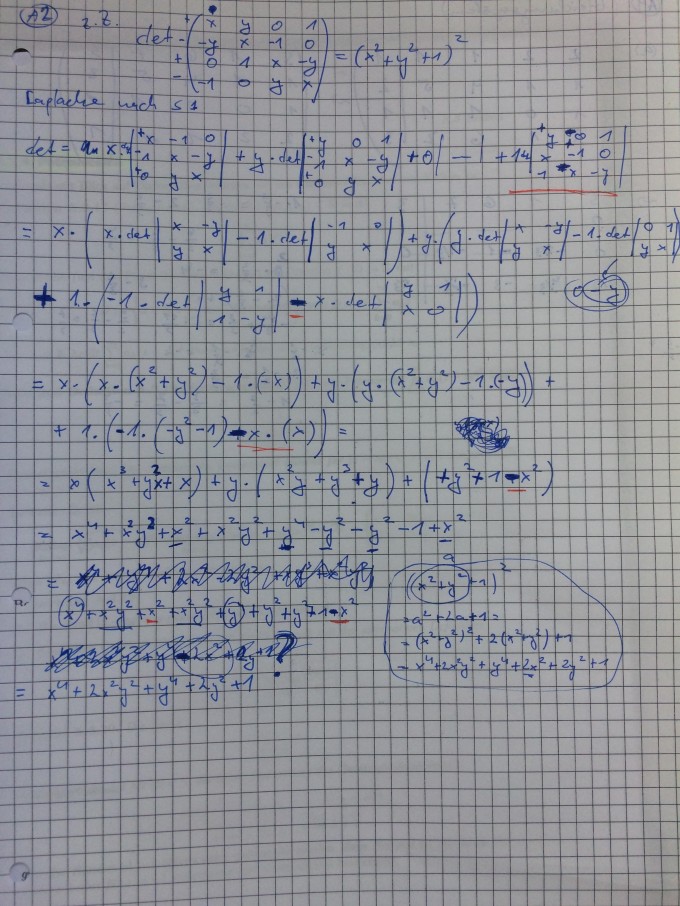 A2 z.Z. det ( x y 0 1
-y x -1 0
0 1 x -y
-1 0 y x ) = (x² + y² + 1)²
Laplace nach S1
det = x · | x -1 0 | + y · det | y 0 1 | + 0 | - | + 1 · | y 0 1 |
1 x -y 1 x -y x -1 0
0 y x 0 y x 1 x -y
= x · ( x · det | x -y | - 1 · det | -1 0 | ) + y · ( y · det | x -y | - 1 · det | 0 1 |
y x y x y x y x
+ 1 · ( -1 · det | y 1 | - x · det | y 1 | ) 0 - y
1 -y x 0
= x · ( x · (x² + y²) - 1 · (-x) ) + y · ( y · (x² + y²) - 1 · (-y) ) +
+ 1 · ( -1 · (-y² - 1) - x · (x) ) =
= x ( x³ + y²x + x ) + y · ( x²y + y³ + y ) + ( + y² + 1 - x² )
= x⁴ + x²y² + x² + x²y² + y⁴ - y² - y² - 1 + x²
=
x⁴ + x²y² + x² + x²y² + y + y² + y² + 1 - x²
?
= x⁴ + 2x²y² + y⁴ + 2y² + 1
a
(x² + y² + 1)²
= a² + 2a + 1 =
= (x² + y²)² + 2(x² + y²) + 1
= x⁴ + 2x²y² + y⁴ + 2x² + 2y² + 1